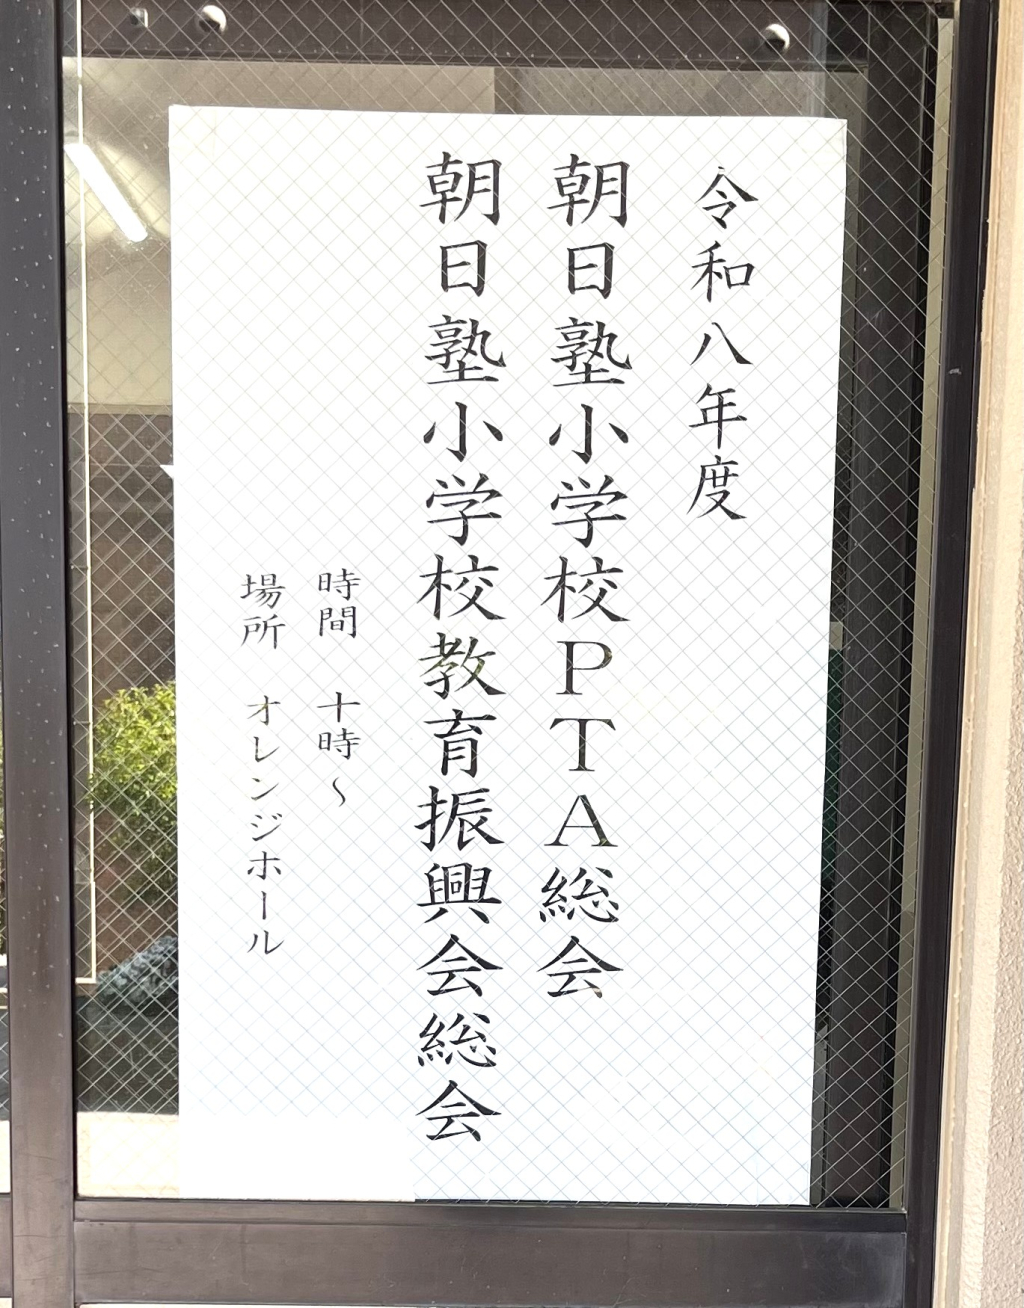 令和八年度
朝日塾小学校PTA総会
朝日塾小学校教育振興会総会
時間　十時～
場所　オレンジホール